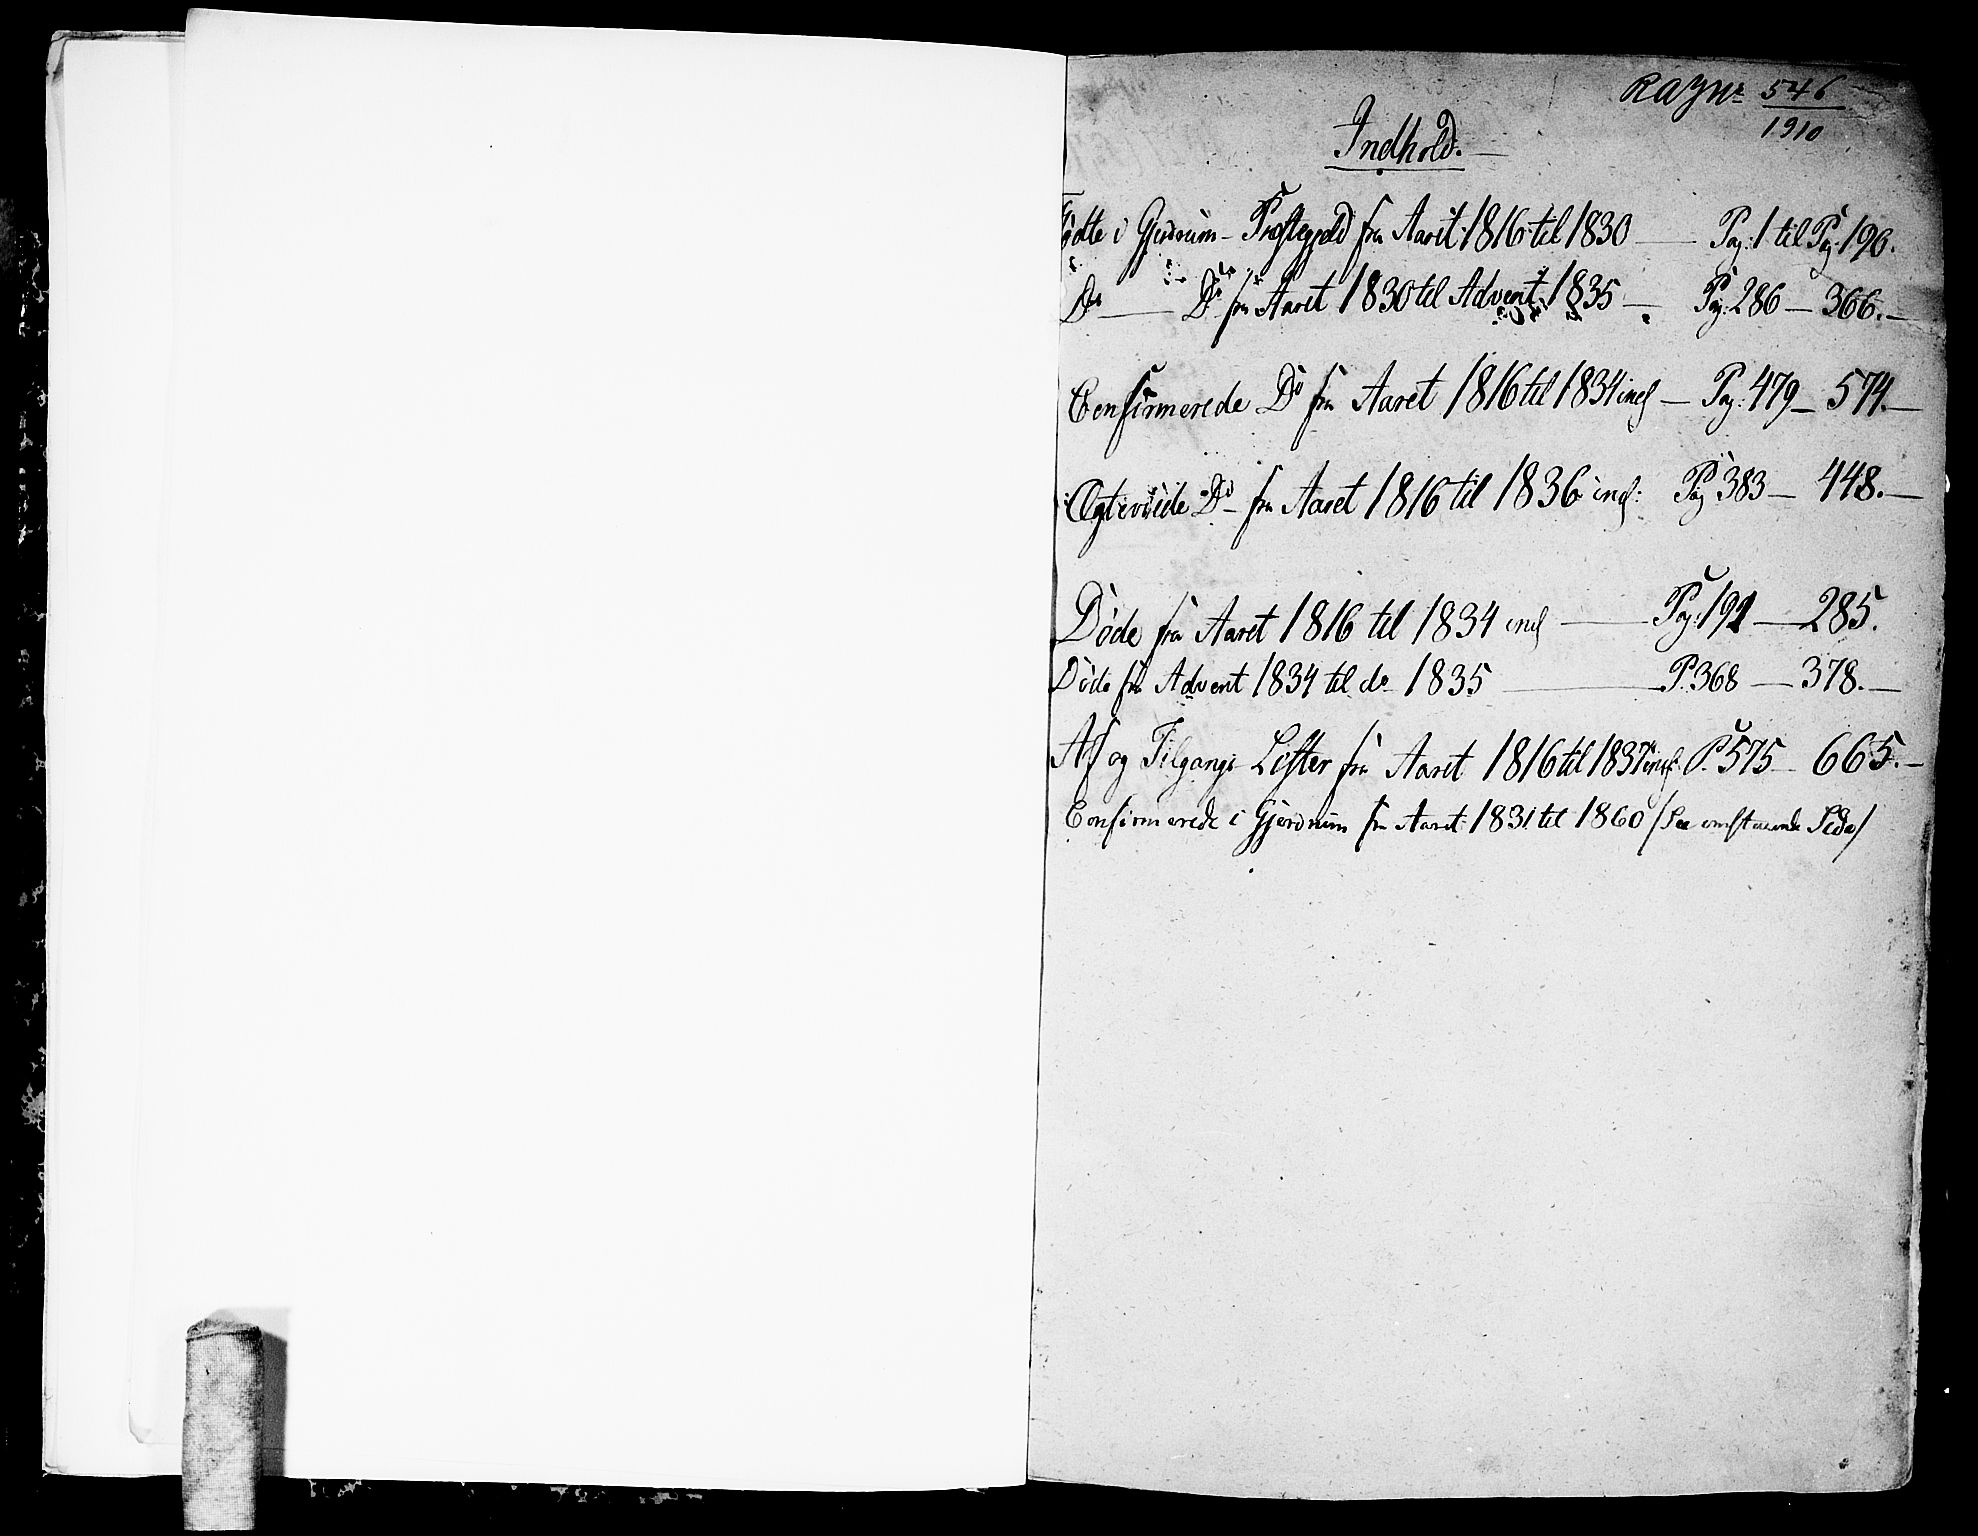 RAJNr 546/1910
Indhold.
Fødte i Gjerdrum Præstegjeld fra Aaret 1816 til 1830 — Pag: 1 til Pag. 190.
Do — Do fra Aaret 1830 til Advent 1835 — Pag: 286 — 366. —
Confirmerede Do fra Aaret 1816 til 1834 incl — Pag: 479 — 574. —
Ægteviede Do — fra Aaret 1816 til 1836 incl: Pag 383 — 448. —
Døde fra Aaret 1816 til 1834 incl — Pag: 191 — 285.
Døde fra Advent 1834 til do 1835 — P. 368 — 378. —
Af og Tilgangs Lister fra Aaret 1816 til 1837 incl: P. 575 — 665. —
Confirmerede i Gjerdrum fra Aaret 1831 til 1860 /See omstaaende Side/